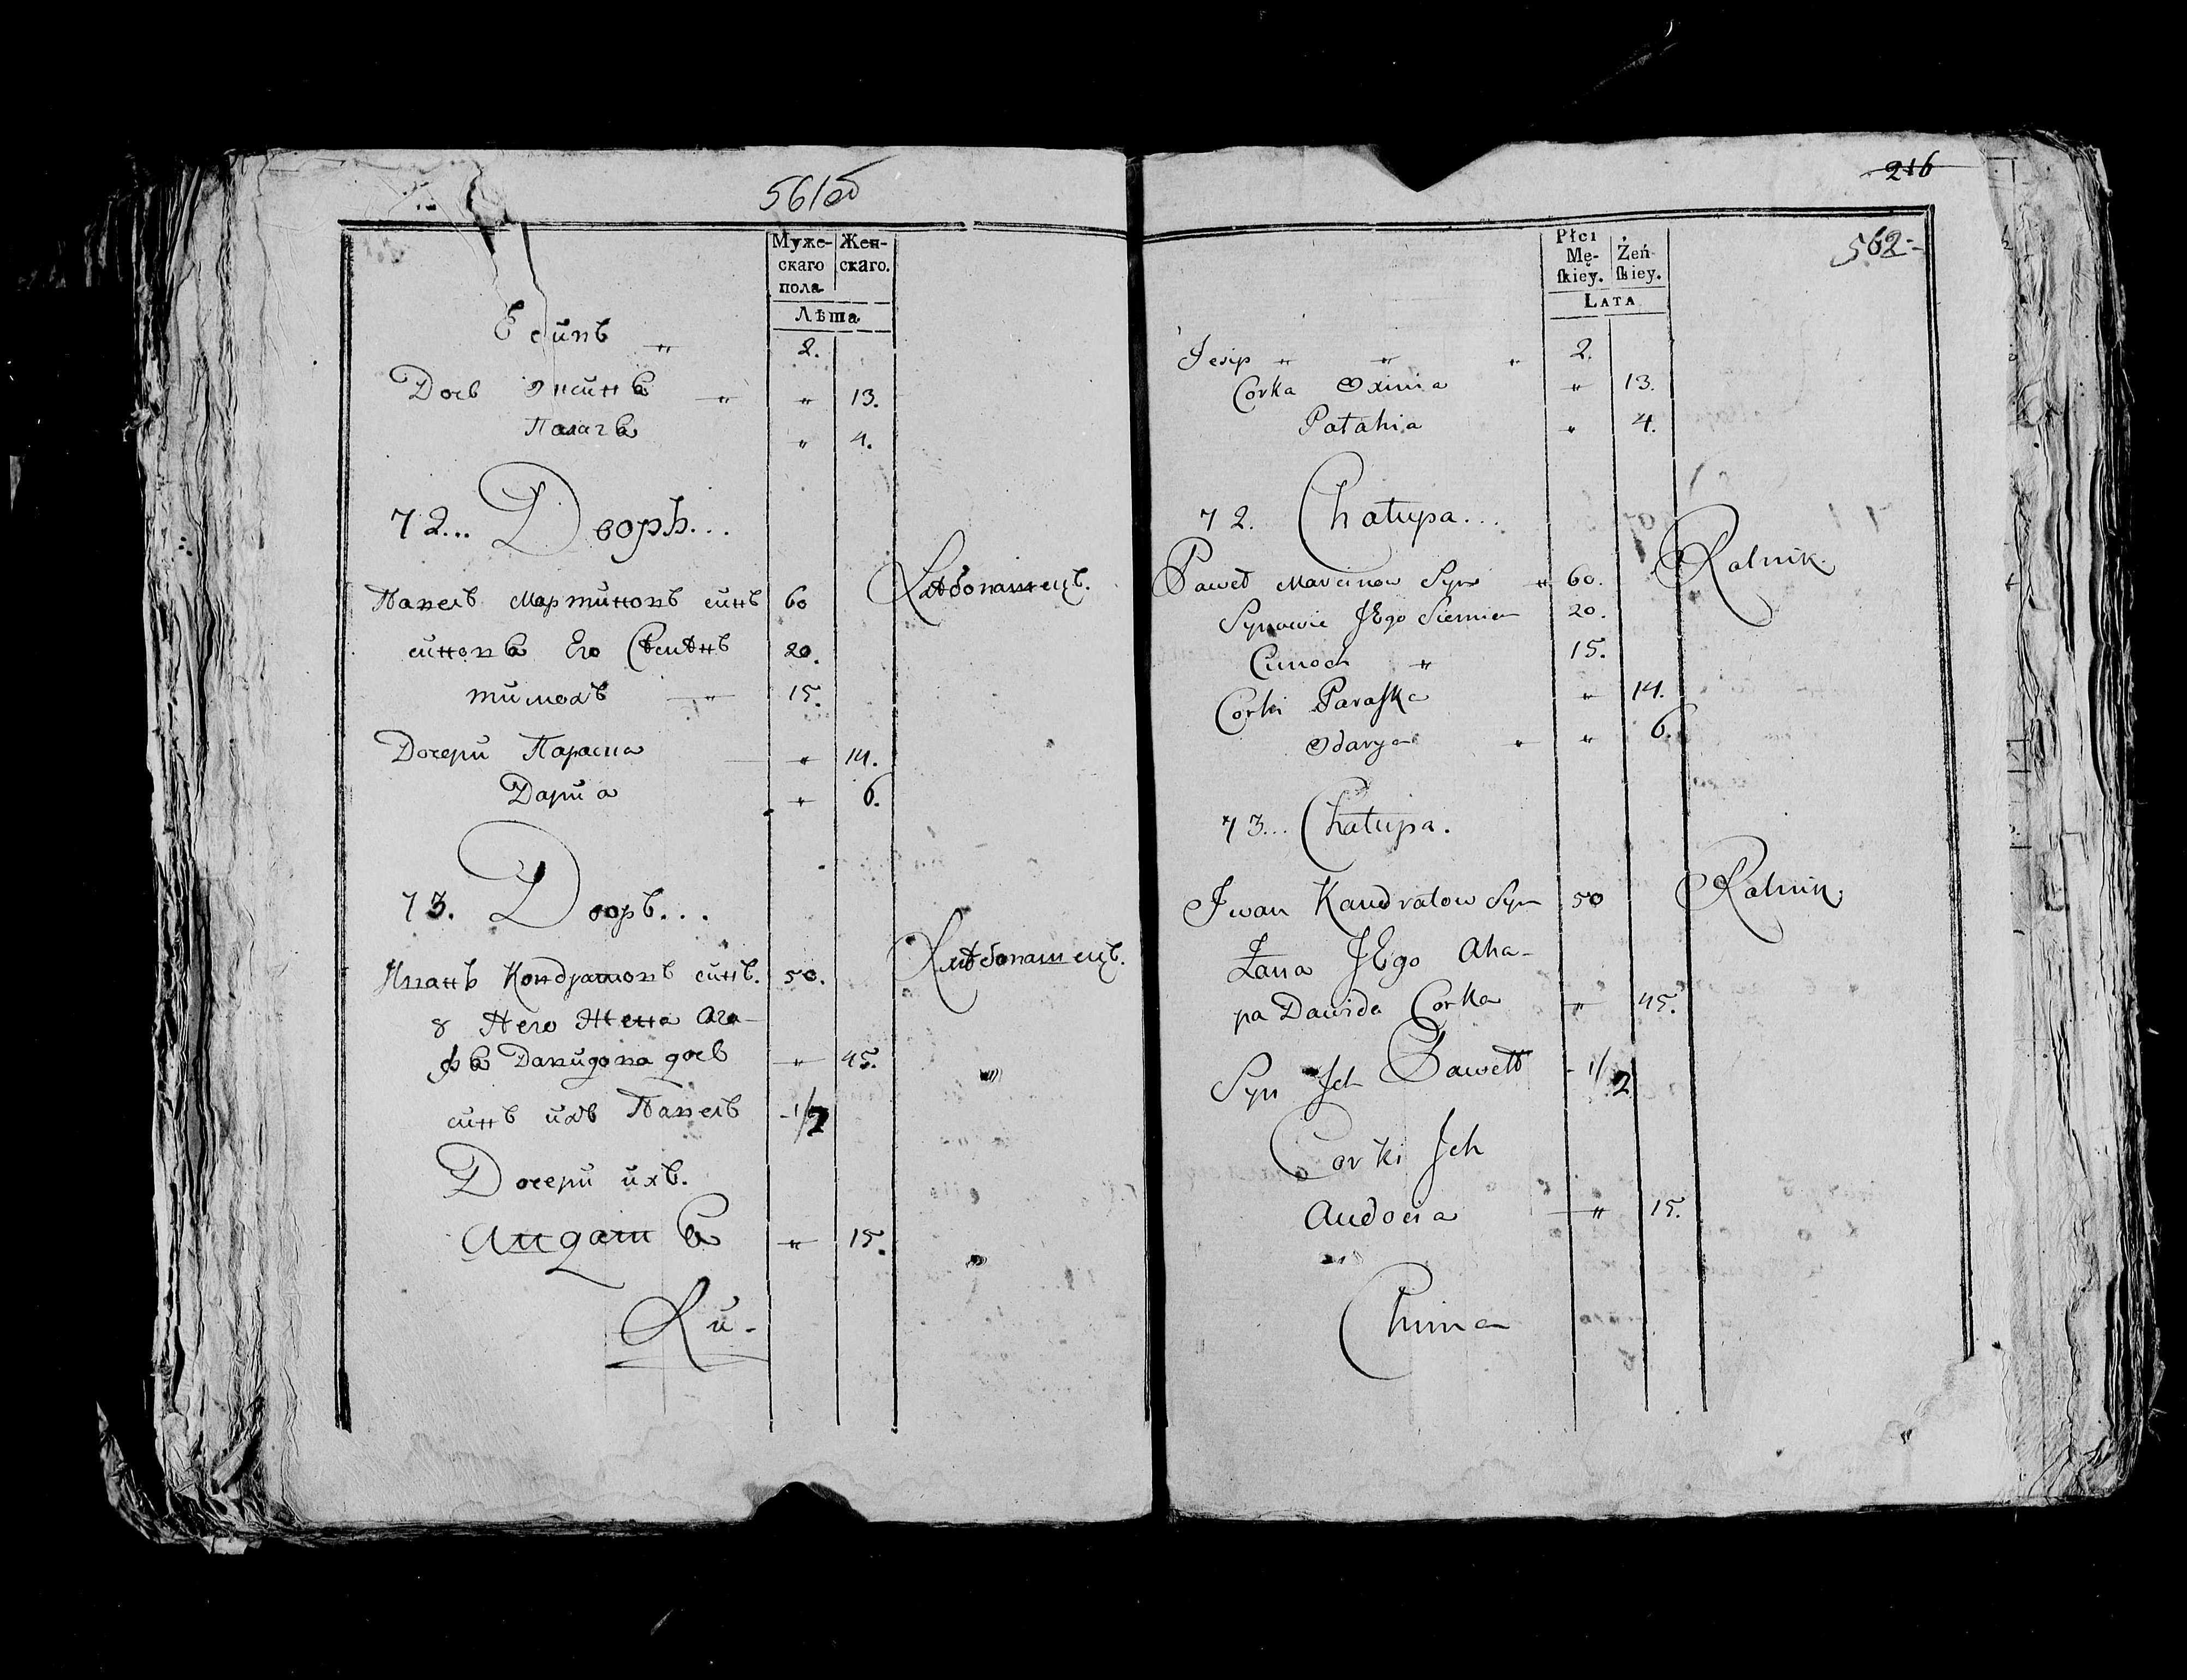 561об
Муже- Жен-
скаго скаго.
пола
Лѣта
Есипъ " 2.
Дочь Оксинѣя " " 13.
Палагѣя " 4.
72... Дворъ...
Павелъ Мартиновъ синъ 60 Хлѣбопашецъ.
синовѣя Его Сѣмѣнъ 20.
тимохъ " 15.
Дочери Параска " 14.
Дариа " 6.
73. Дворъ...
Иванъ Кондратовъ синъ. 50. Хлѣбопашецъ.
у Него Жена Ага-
фѣя Давидова дочь " 45.
синъ ихъ Павелъ 1/2
Дочери ихъ.
Авдотѣя " 15.
Хи-
216
562
Płci
Mę- Żeń-
ſkiey. ſkiey.
LATA
Jesip " " " 2.
Corka Oxinia " 13.
Patahia " 4.
72. Chatupa...
Paweł Marcinow Syn " 60. Rolnik.
Synowie JEgo Siemien 20.
Cimoch " 15.
Corki Paraſka " 14.
Odarya " " 6.
73... Chatupa.
Jwan Kandratow Syn 50 Rolnik
Żana JEgo Aha-
pa Dawida Corka " 45.
Syn Jch Paweł 1/2
Corki Jch
Audocia " 15.
Chima